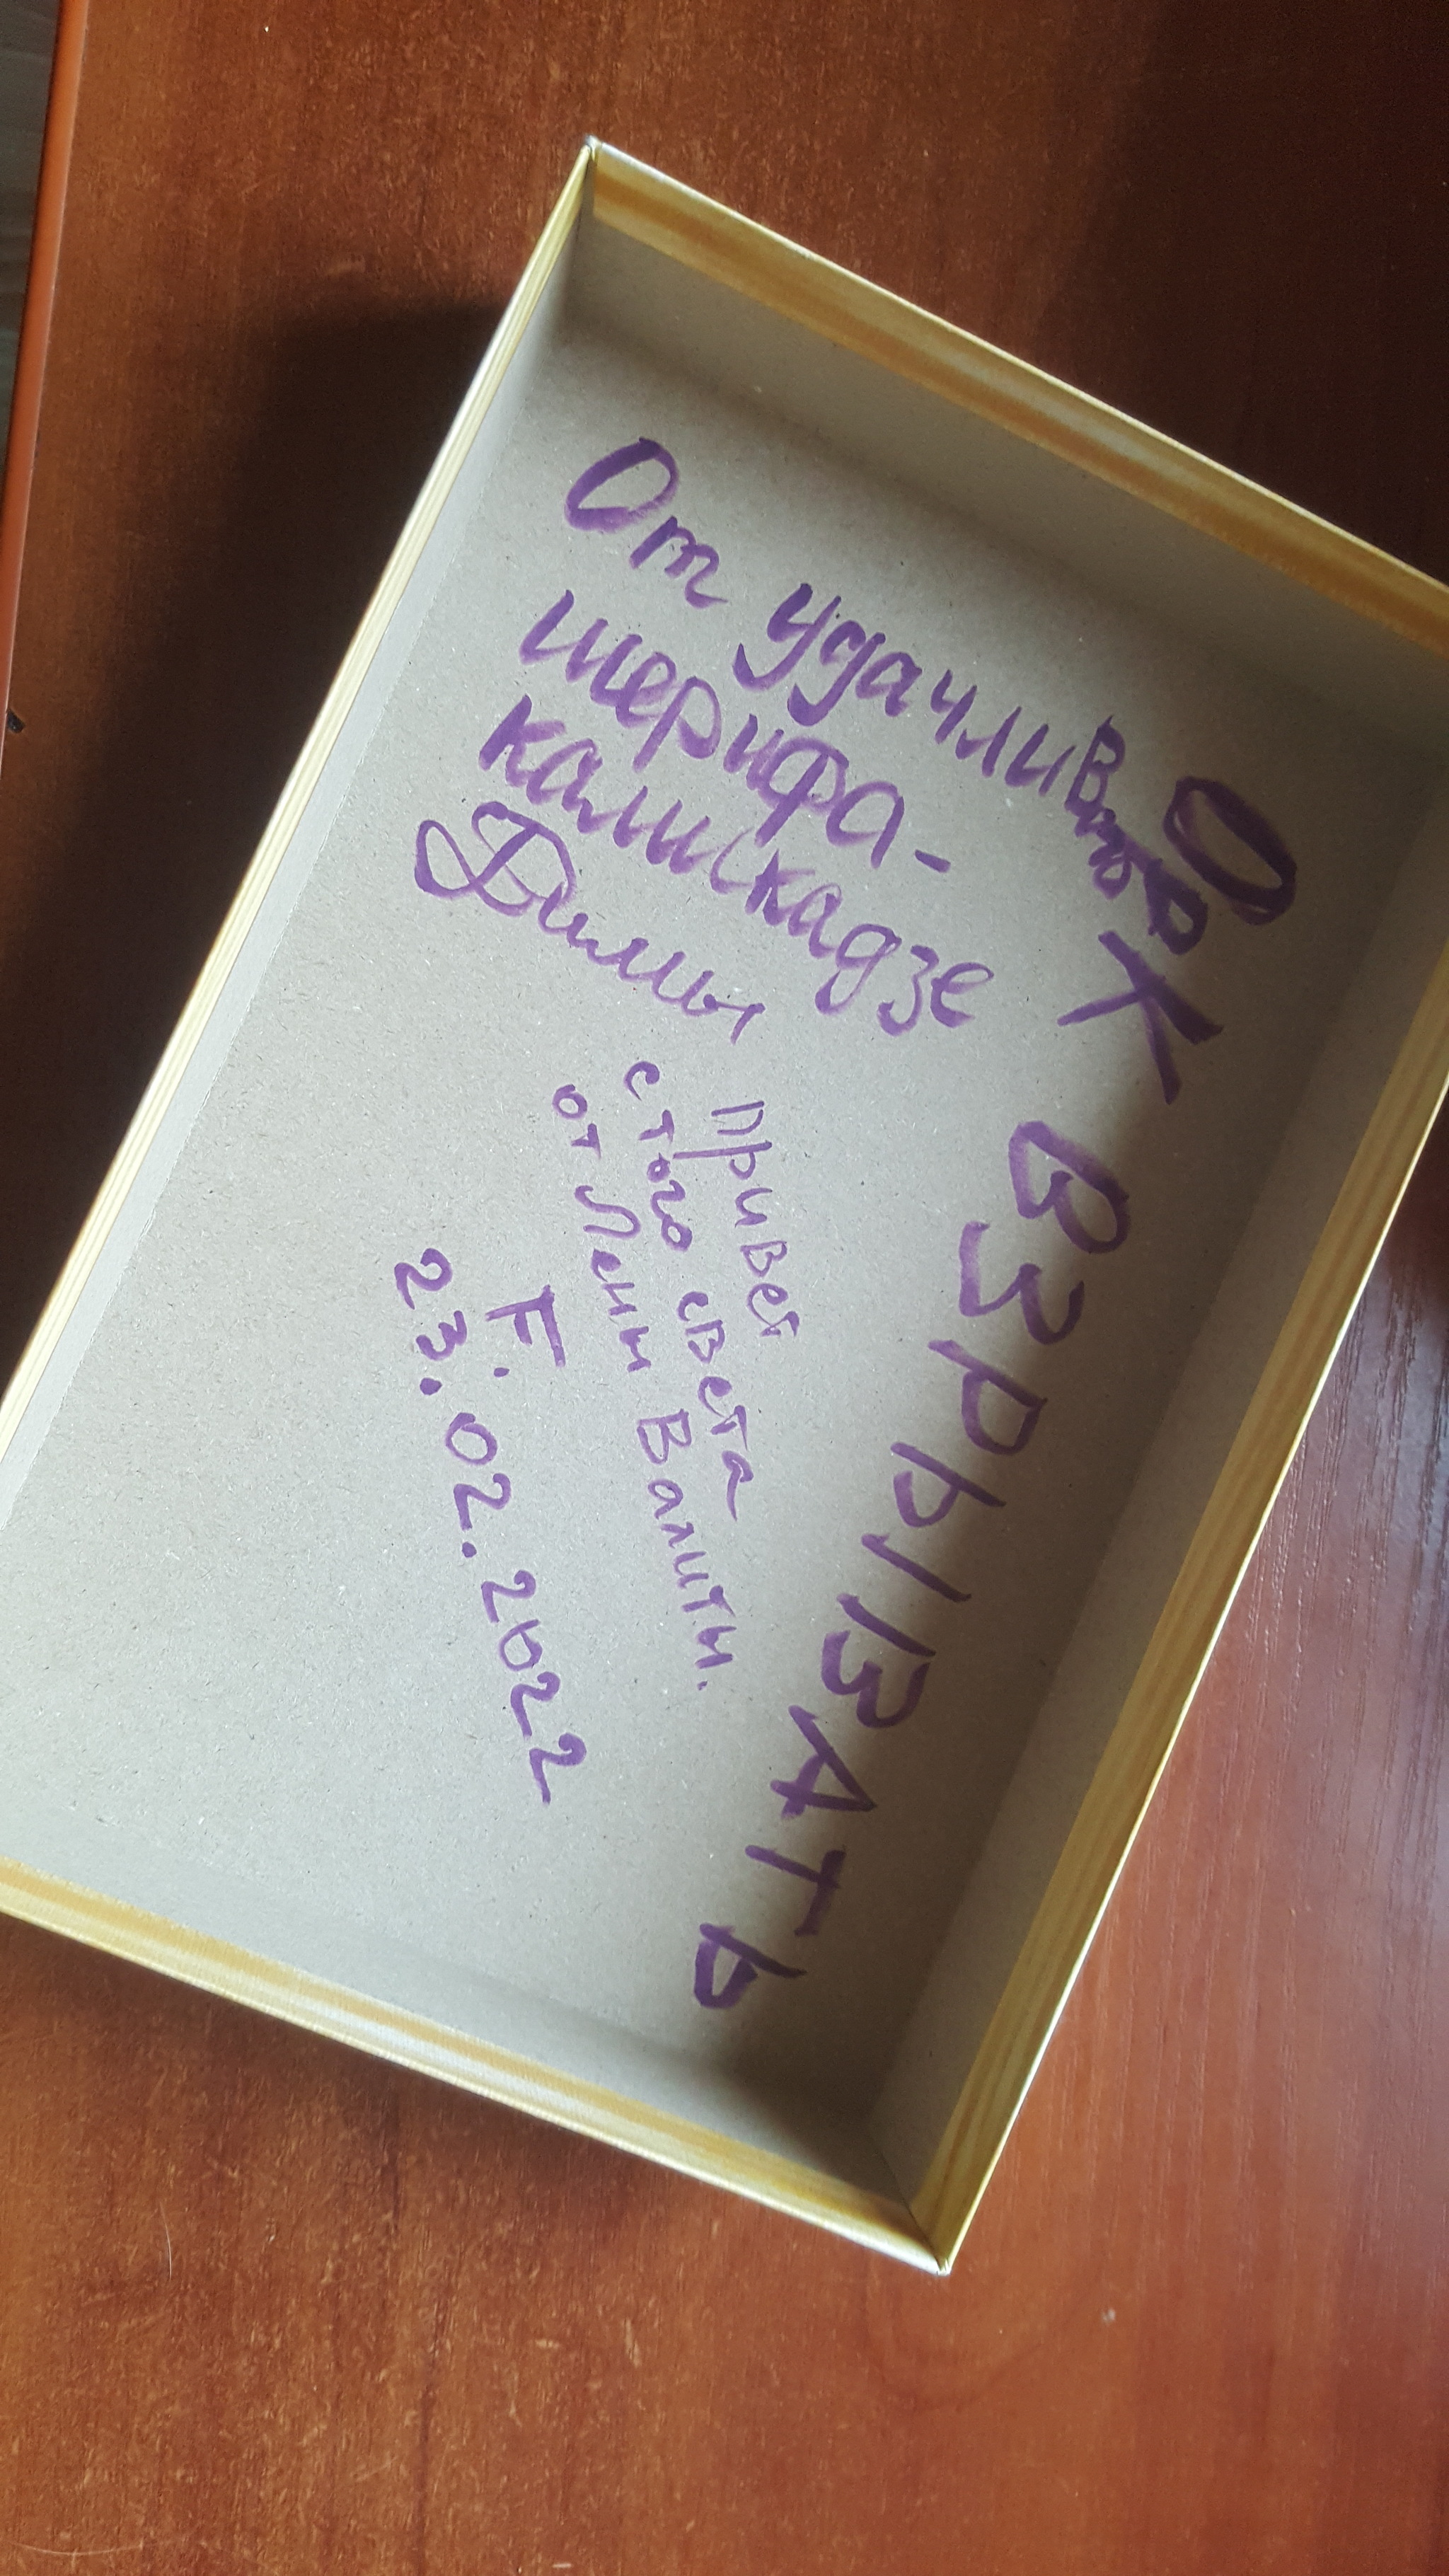 ОРК ВЗРЫВАТЬ
От удачливого
шерифа-
камикадзе
Димы
Привет
с того света
от Лены Валиты.
F.
23.02.2022